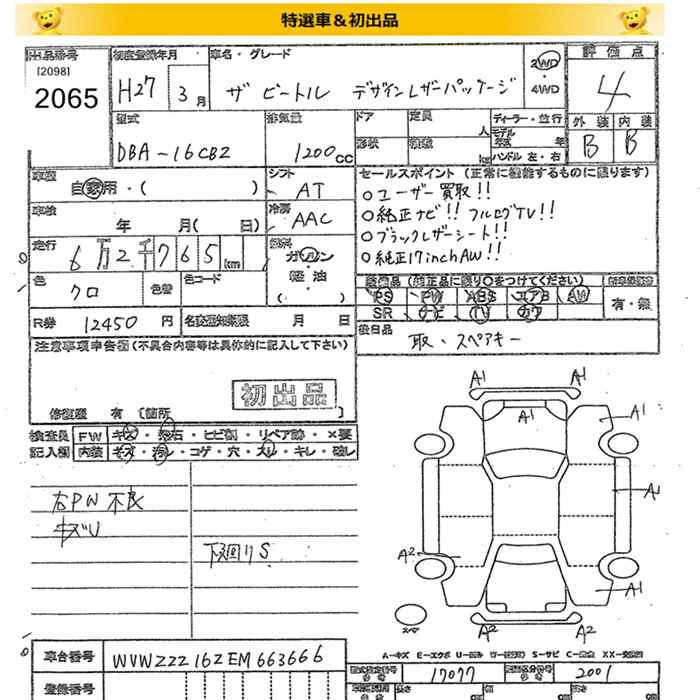 特選車＆初出品
出品番号
[2098]
2065
初度登録年月
H27 3月
車名・グレード
ザ ビートル デザインレザーパッケージ
2WD
・
4WD
評価点
4
外装 内装
B B
型式
DBA-16CBZ
排気量
1200cc
ドア
定員
人
形状
積載
kg
ディーラー・並行
モデル
年式 年
ハンドル 左・右
車歴
自家用・( )
シフト
AT
セールスポイント (正常に機能するものに限ります)
○ユーザー買取!!
○純正ナビ!! フルセグTV!!
○ブラックレザーシート!!
○純正17inchAW!!
車検
年 月( 日)
冷房
AAC
走行
6万2千765km
燃料
ガソリン
・
軽・油
( )
色
クロ
色替
色コード
装備品 (純正品に限り○をつけてください)
PS PW ABS エアB AW
SR ナビ TV カワ
有・無
R券 12450円
名変通知期限 月 日
後日品
取、スペアキー
注意事項申告欄(不具合内容等は具体的に記入して下さい)
初出品
修復歴 有 [箇所 ]
検査員
記入欄
FW キズ・飛石・ヒビ割・リペア跡・×要
内装 キズ・汚レ・コゲ・穴・スレ・キレ・破レ
右PW不良
キズU
下廻りS
A1 A1
A1
A1
A1
A2
A1
A2 A2
スペア
A-キズ E-エクボ U-凹み W-(波板) S-サビ C-腐食 XX-交換済
車台番号 WVWZZZ16ZEM663666
登録番号
型式指定番号 17077
類別区分番号 2001
長さ
cm